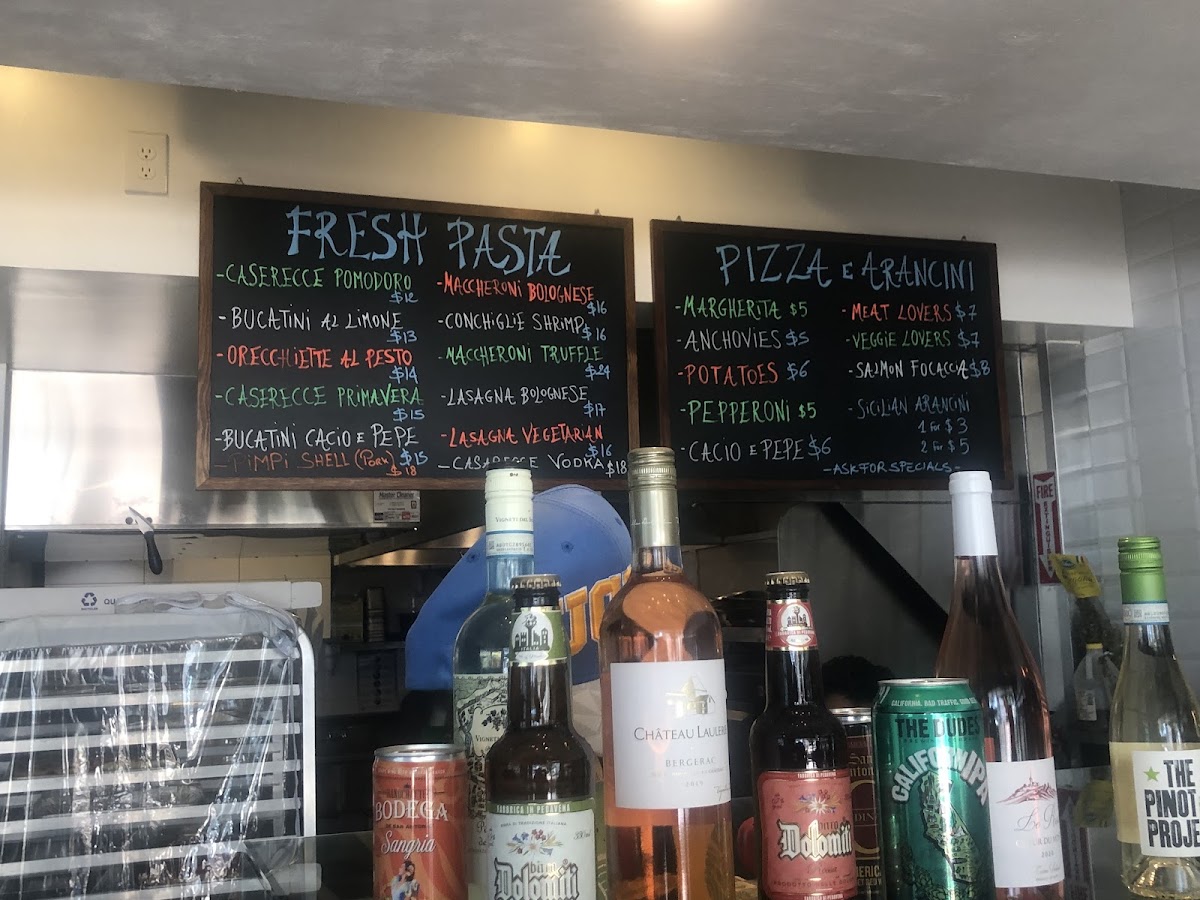 FRESH PASTA
-CASERECCE POMODORO
$12
-BUCATINI AL LIMONE
$13
-ORECCHIETTE AL PESTO
$14
-CASERECCE PRIMAVERA
$15
-BUCATINI CACIO E PEPE
$15
-TIMPI SHELL (PORK)
$18
-MACCHERONI BOLOGNESE
$16
-CONCHIGLIE SHRIMP
$16
-MACCHERONI TRUFFLE
$24
-LASAGNA BOLOGNESE
$17
-LASAGNA VEGETARIAN
$16
VODKA $18
PIZZA E ARANCINI
-MARGHERITA $5
-ANCHOVIES $5
-POTATOES $6
-PEPPERONI $5
-CACIO E PEPE $6
-MEAT LOVERS $7
-VEGGIE LOVERS $7
-SALMON FOCACCIA $8
-SICILIAN ARANCINI
1 for $3
2 for $5
-ASK FOR SPECIALS-
FIRE
BODEGA
Sangria
ITALIA
Dolomiti
CHÂTEAU LAULERIE
BERGERAC
2019
Dolomiti
CALIFORNIA. BAD TRAFFIC. GOOD BEER.
THE DUDES'
CALIFORNIPA
THE
PINOT
PROJE